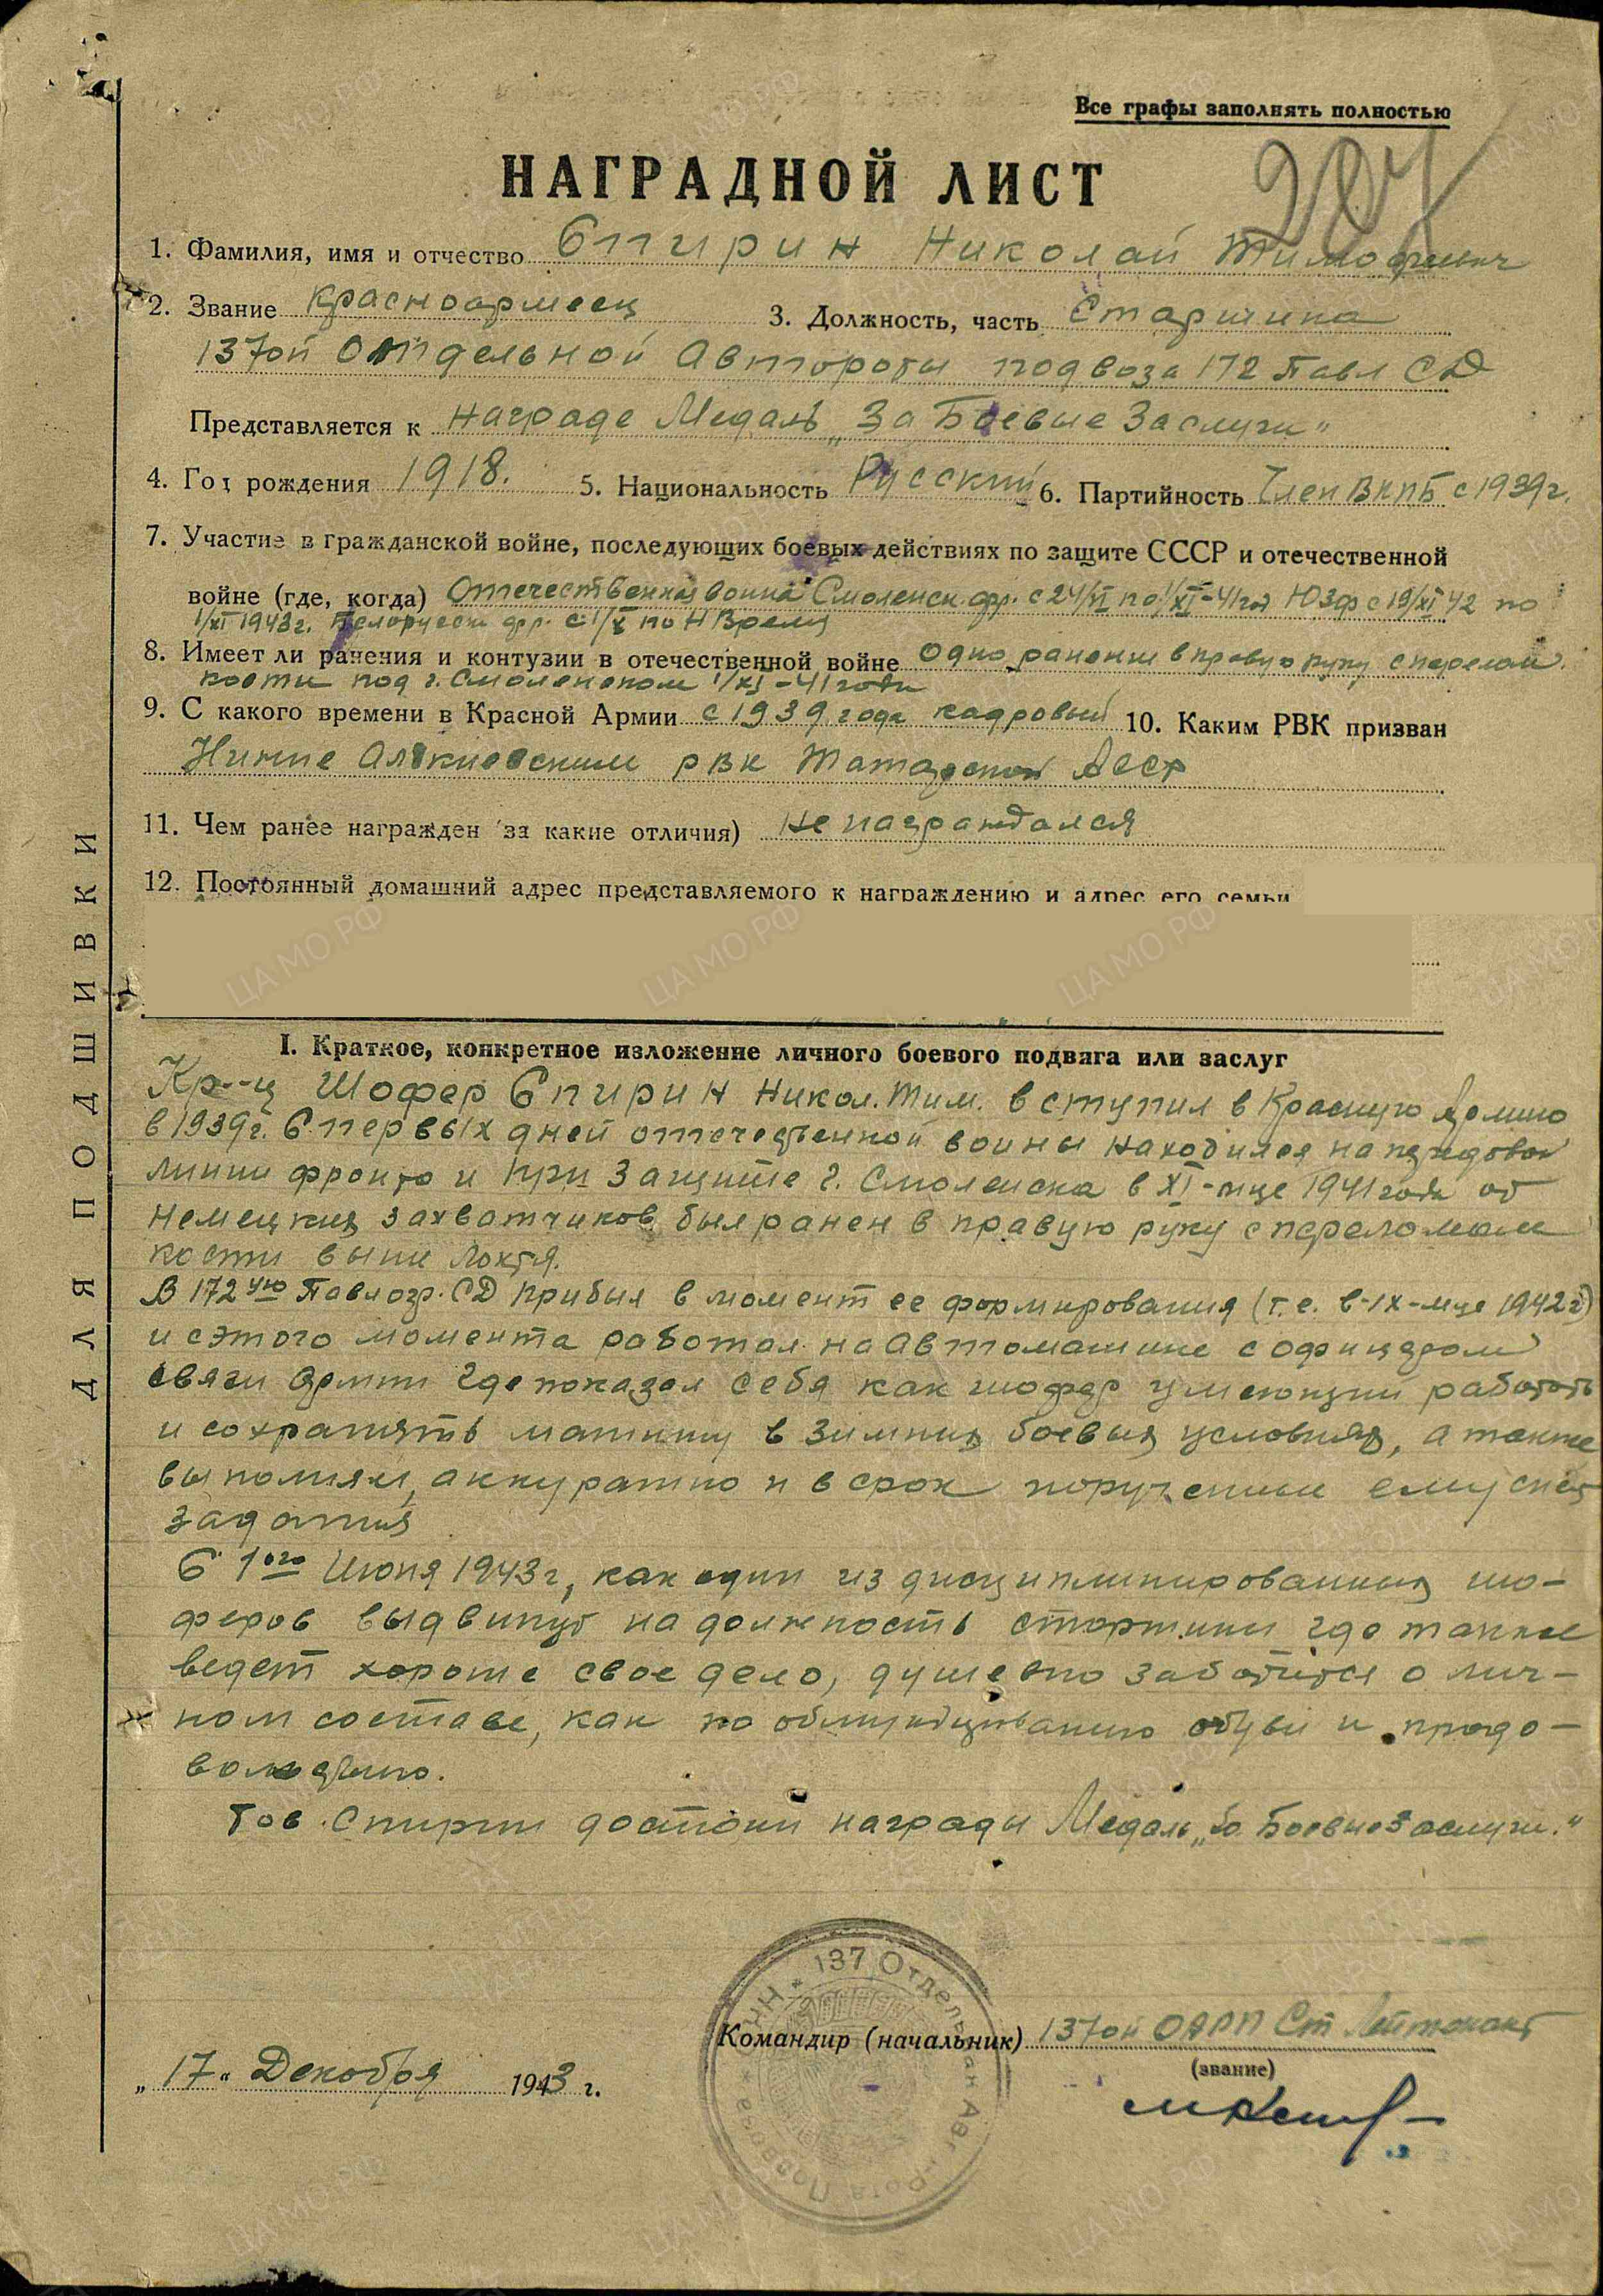 Все графы заполнять полностью
207
НАГРАДНОЙ ЛИСТ
1. Фамилия, имя и отчество Спирин Николай Тимофеевич
2. Звание Красноармеец 3. Должность, часть Старшина
137ой Отдельной Автороты подвоза 172 Павл СД
Представляется к награде Медаль „За Боевые Заслуги"
4. Год рождения 1918. 5. Национальность Русский 6. Партийность Член ВКПБ с 1939г.
7. Участие в гражданской войне, последующих боевых действиях по защите СССР и отечественной
войне (где, когда) Отечественная война Смоленск. фр. с 24/VI по 1/XI-41год ЮЗФ с 19/XI 42 по
1/XI 1943г. Белорусск фр. с 1/X по Н Время
8. Имеет ли ранения и контузии в отечественной войне Одно ранение в правую руку с перелом.
кости под г. Смоленском 1/XI-41 года
9. С какого времени в Красной Армии с 1939 года кадровый 10. Каким РВК призван
РВК Татарской АССР
11. Чем ранее награжден за какие отличия) не награждался
12. Постоянный домашний адрес представляемого к награждению и адрес его семьи
I. Краткое, конкретное изложение личного боевого подвига или заслуг
Кр-ц Шофер Спирин Никол. Тим. вступил в Красную Армию
в 1939г. С первых дней отечественной войны находился на передовой
линии фронта и при защите г. Смоленска в XI-м-це 1941 года от
немецких захватчиков был ранен в правую руку с переломом
кости выше локтя.
В 172ую Павлогр. СД прибыл в момент ее формирования (т.е. в IX-м-це 1942г)
и с этого момента работал на автомашине с офицером
связи Армии где показал себя как шофер умеющий работать
и сохранять машину в зимних боевых условиях, а также
выполнял, аккуратно и в срок порученные ему спец
задания
С 1ого Июня 1943г, как один из дисциплинированных шо-
феров выдвинут на должность старшины где также
ведет хорошо свое дело, душевно заботится о лич-
ном составе, как по обмундированию обуви и продо-
вольствию.
Тов. Спирин достоин награды Медаль „За Боевые заслуги."
Командир (начальник) 137ой ОАРП Ст Лейтенант
(звание)
„17" Декабря 1943 г.
137 Отдельная Авт-Рота Подвоза * НКО СССР *
ДЛЯ ПОДШИВКИ
ЦА МО РФ